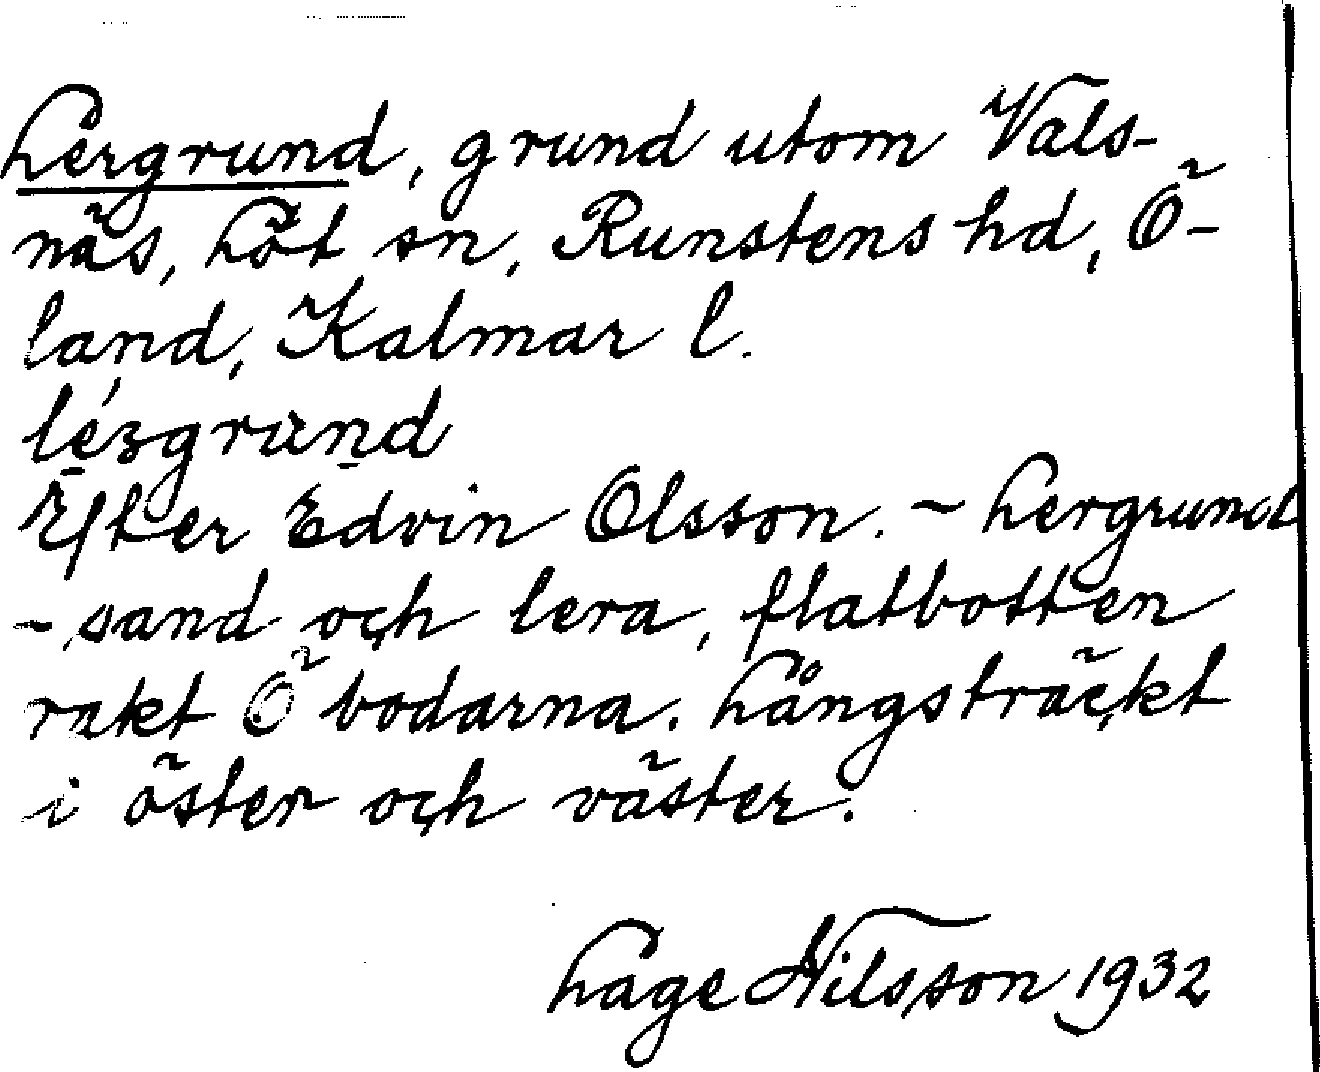 Lergrund, grund utom Vals-
näs, Löt sn, Runstens hd, Ö-
land, Kalmar l.
Efter Edvin Olsson. - Lergrund
- sand och lera, flatbotten
rakt Ö bodarna. Långsträckt
i öster och väster.
Lage Nilsson 1932